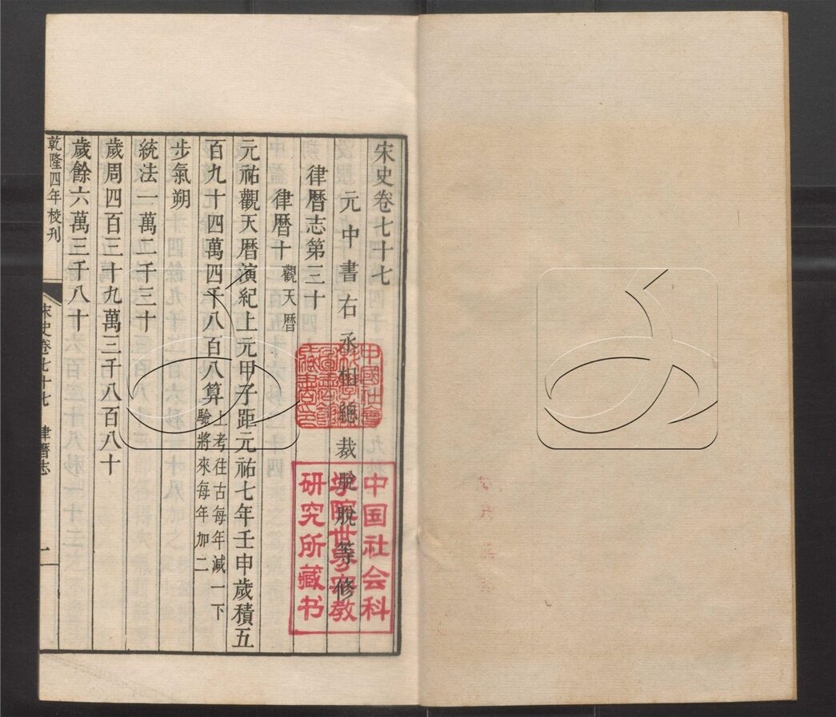 宋史卷七十七
元中書右丞相總裁脫脫等修
律曆志第三十
律曆十 觀天曆
元祐觀天曆演紀上元甲子距元祐七年壬申歲積五
百九十四萬四千八百八算 上考往古每年減一下
驗將來每年加二
步氣朔
統法一萬二千三十
歲周四百三十九萬三千八百八十
歲餘六萬三千八十
乾隆四年校刊
宋史卷七十七 律曆志
二
中国社会科
学院世界宗教
研究所藏书